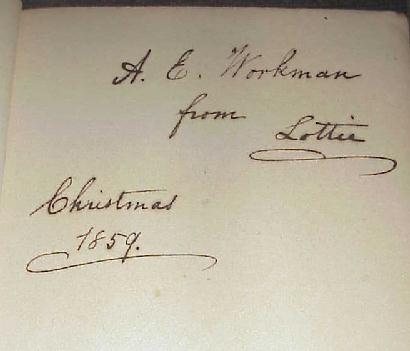 A. E. Workman
from
Lottie
Christmas
1859.